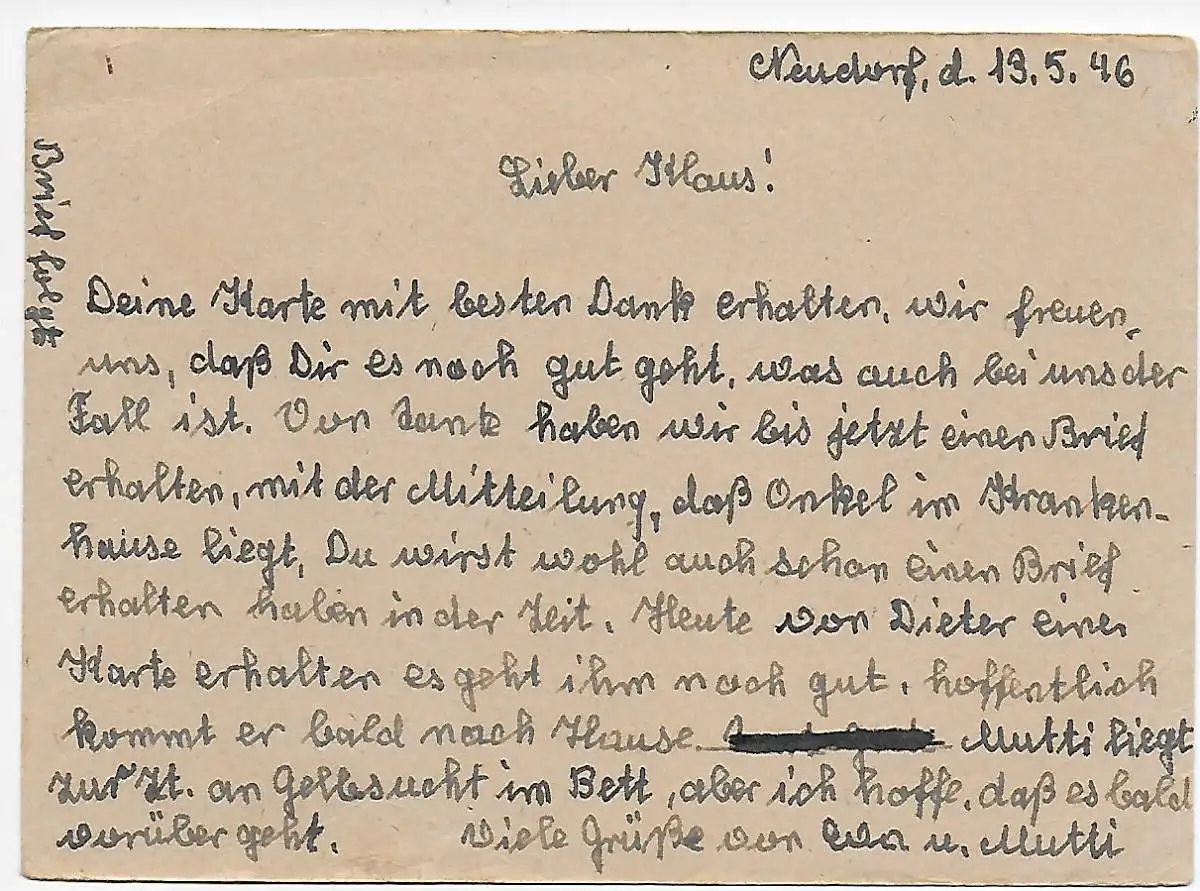 Neudorf, d. 13.5.46
Lieber Klaus!
Deine Karte mit besten Dank erhalten, wir freuen
uns, daß Dir es noch gut geht, was auch bei uns der
Fall ist. Von Tante haben wir bis jetzt einen Brief
erhalten, mit der Mitteilung, daß Onkel im Kranken-
hause liegt, Du wirst wohl auch schon einen Brief
erhalten haben in der Zeit. Heute von Dieter eine
Karte erhalten es geht ihm noch gut, hoffentlich
kommt er bald nach Hause. Mutti liegt
zur Zt. an Gelbsucht im Bett, aber ich hoffe, daß es bald
vorüber geht. Viele Grüße von Eva u. Mutti
Brief folgt